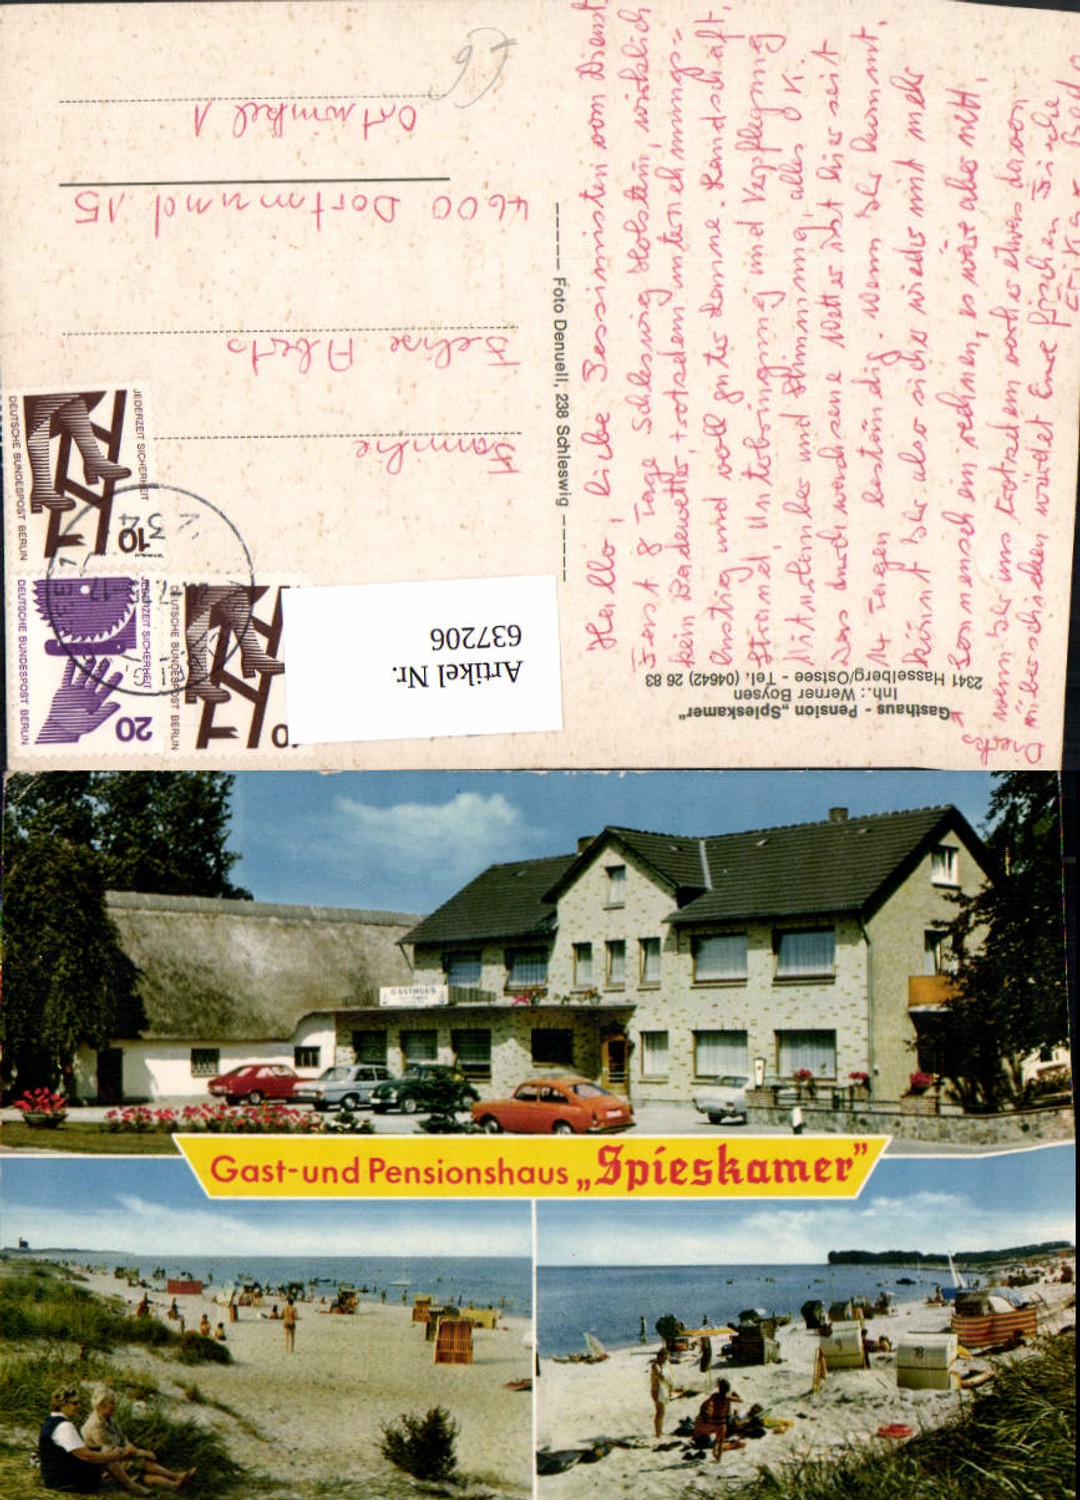 Gasthaus - Pension „Spieskamer“
Inh.: Werner Boysen
2341 Hasselberg/Ostsee - Tel. (04642) 26 83
Foto Denuell, 238 Schleswig
Hallo, liebe Pessimisten vom Dienst
Fast 8 Tage Schleswig Holstein, wirklich
kein Badewetter, trotzdem unternehmungs=
lustig und voll guter Laune. Landschaft,
Strand, Unterbringung und Verpflegung
Miturlauber und Stimmung, alles o.K.
Das durchwachsene Wetter ist hier seit
14 Tagen beständig. Wenn Ihr kommt,
könnt Ihr also sicher wieder mit mehr
Sonnenschein rechnen, es wäre aber nett,
wenn Ihr uns trotzdem noch etwas davon
rüberschicken würdet Eure frischen Fische
Erika
Familie
Felixe Alberts
4600 Dortmund 15
Ortwinkel 1
JEDERZEIT SICHERHEIT
10
DEUTSCHE BUNDESPOST BERLIN
JEDERZEIT SICHERHEIT
20
DEUTSCHE BUNDESPOST BERLIN
DEUTSCHE BUNDESPOST BERLIN
Artikel Nr.
637206
GASTHAUS
Gast-und Pensionshaus „Spieskamer”